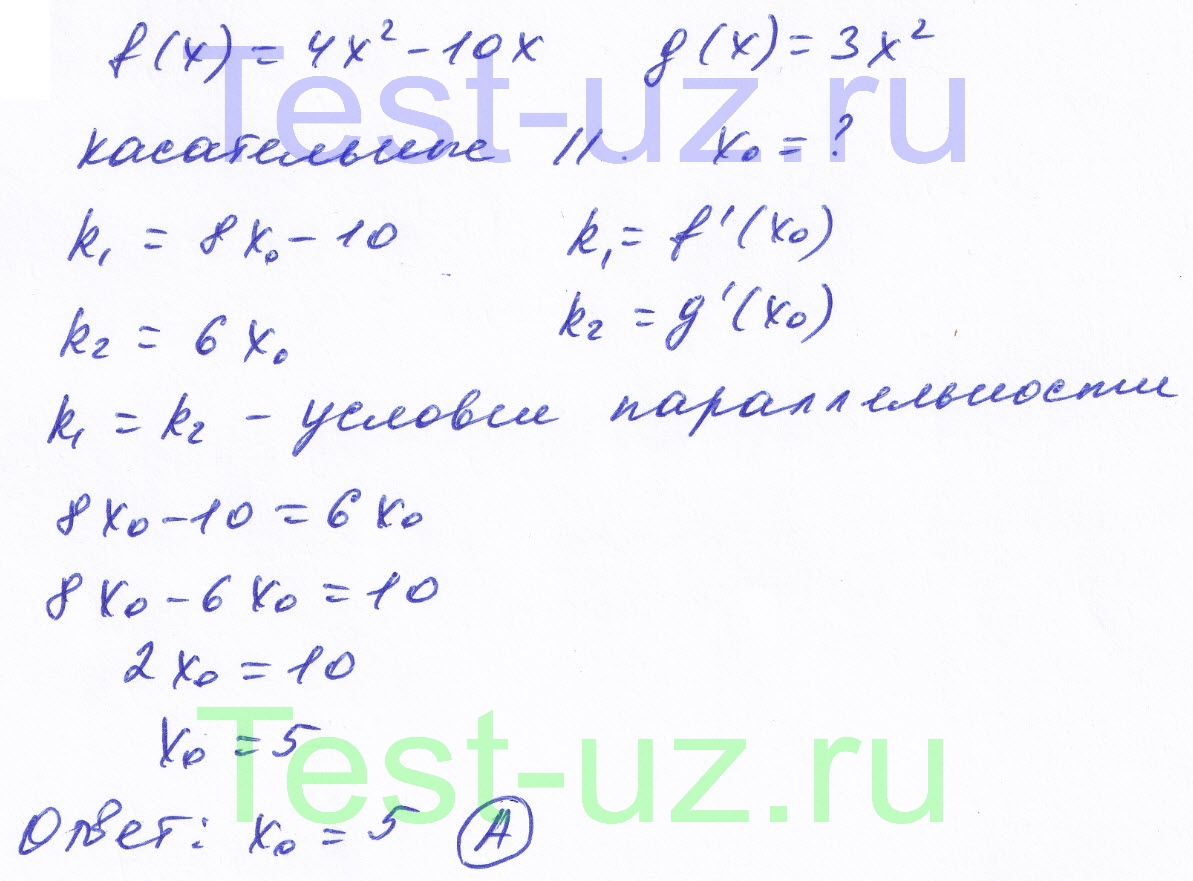 f(x) = 4x² - 10x   g(x) = 3x²
Test-uz.ru
касательные || .   x₀ = ?
k₁ = 8x₀ - 10   k₁ = f'(x₀)
k₂ = 6x₀   k₂ = g'(x₀)
k₁ = k₂ - условие параллельности
8x₀ - 10 = 6x₀
8x₀ - 6x₀ = 10
2x₀ = 10
x₀ = 5
Test-uz.ru
Ответ: x₀ = 5 А